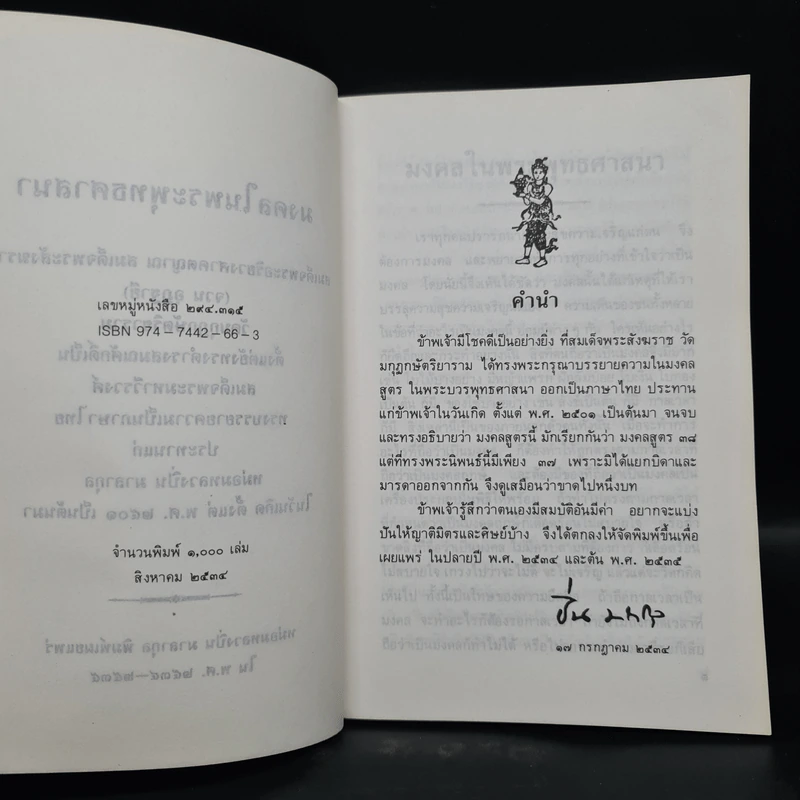 เลขหมู่หนังสือ ๒๙๔.๓๑๕
ISBN 974-7442-66-3
จำนวนพิมพ์ ๑,๐๐๐ เล่ม
สิงหาคม ๒๕๓๔
คำนำ
ข้าพเจ้ามีโชคดีเป็นอย่างยิ่ง ที่สมเด็จพระสังฆราช วัด
มกุฏกษัตริยาราม ได้ทรงพระกรุณาบรรยายความในมงคล
สูตร ในพระบวรพุทธศาสนา ออกเป็นภาษาไทย ประทาน
แก่ข้าพเจ้าในวันเกิด ตั้งแต่ พ.ศ. ๒๕๐๑ เป็นต้นมา จนจบ
และทรงอธิบายว่า มงคลสูตรนี้ มักเรียกกันว่า มงคลสูตร ๓๘
แต่ที่ทรงพระนิพนธ์นี้มีเพียง ๓๗ เพราะมิได้แยกบิดาและ
มารดาออกจากกัน จึงดูเสมือนว่าขาดไปหนึ่งบท
ข้าพเจ้ารู้สึกว่าตนเองมีสมบัติอันมีค่า อยากจะแบ่ง
ปันให้ญาติมิตรและศิษย์บ้าง จึงได้ตกลงให้จัดพิมพ์ขึ้นเพื่อ
เผยแพร่ ในปลายปี พ.ศ. ๒๕๓๔ และต้น พ.ศ. ๒๕๓๕
ปิ่น มาลากุล
๑๗ กรกฎาคม ๒๕๓๔